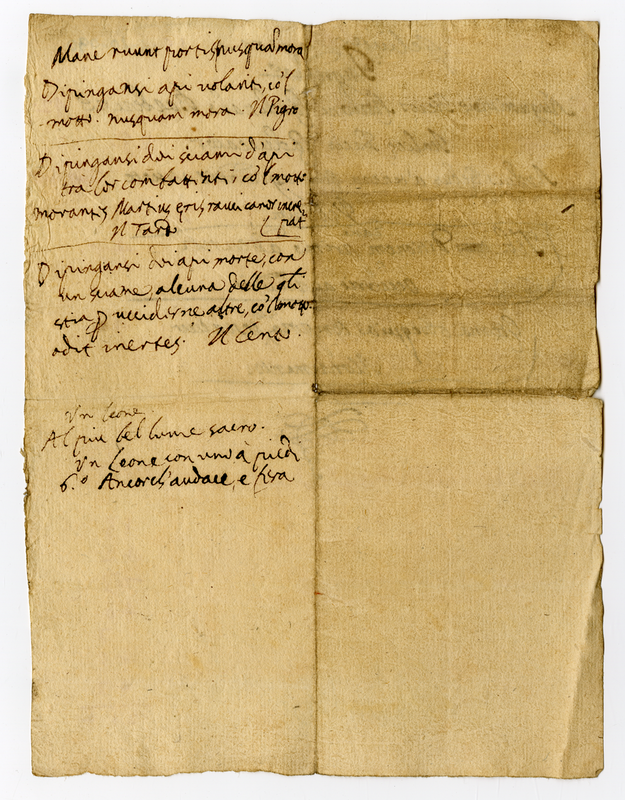 Mane ruunt portis, nusquã mora
Dipingansi api volanti, co'l
motto. nusquam mora. Il Pigro
Dipingansi doi sciami d'api
tra lor combattenti, co'l motto
morantis Martius æris rauci canor incre-
Il Tardo pat
Dipingansi doi api morte, con
un sciame, alcuna delle qli
stia p ucciderne altre, co'l motto.
odit inertes. Il Lento.
Un leone.
Al piu bel lume sacro.
Un leone con uno à piedi
6.º Ancorch'audace, e fera